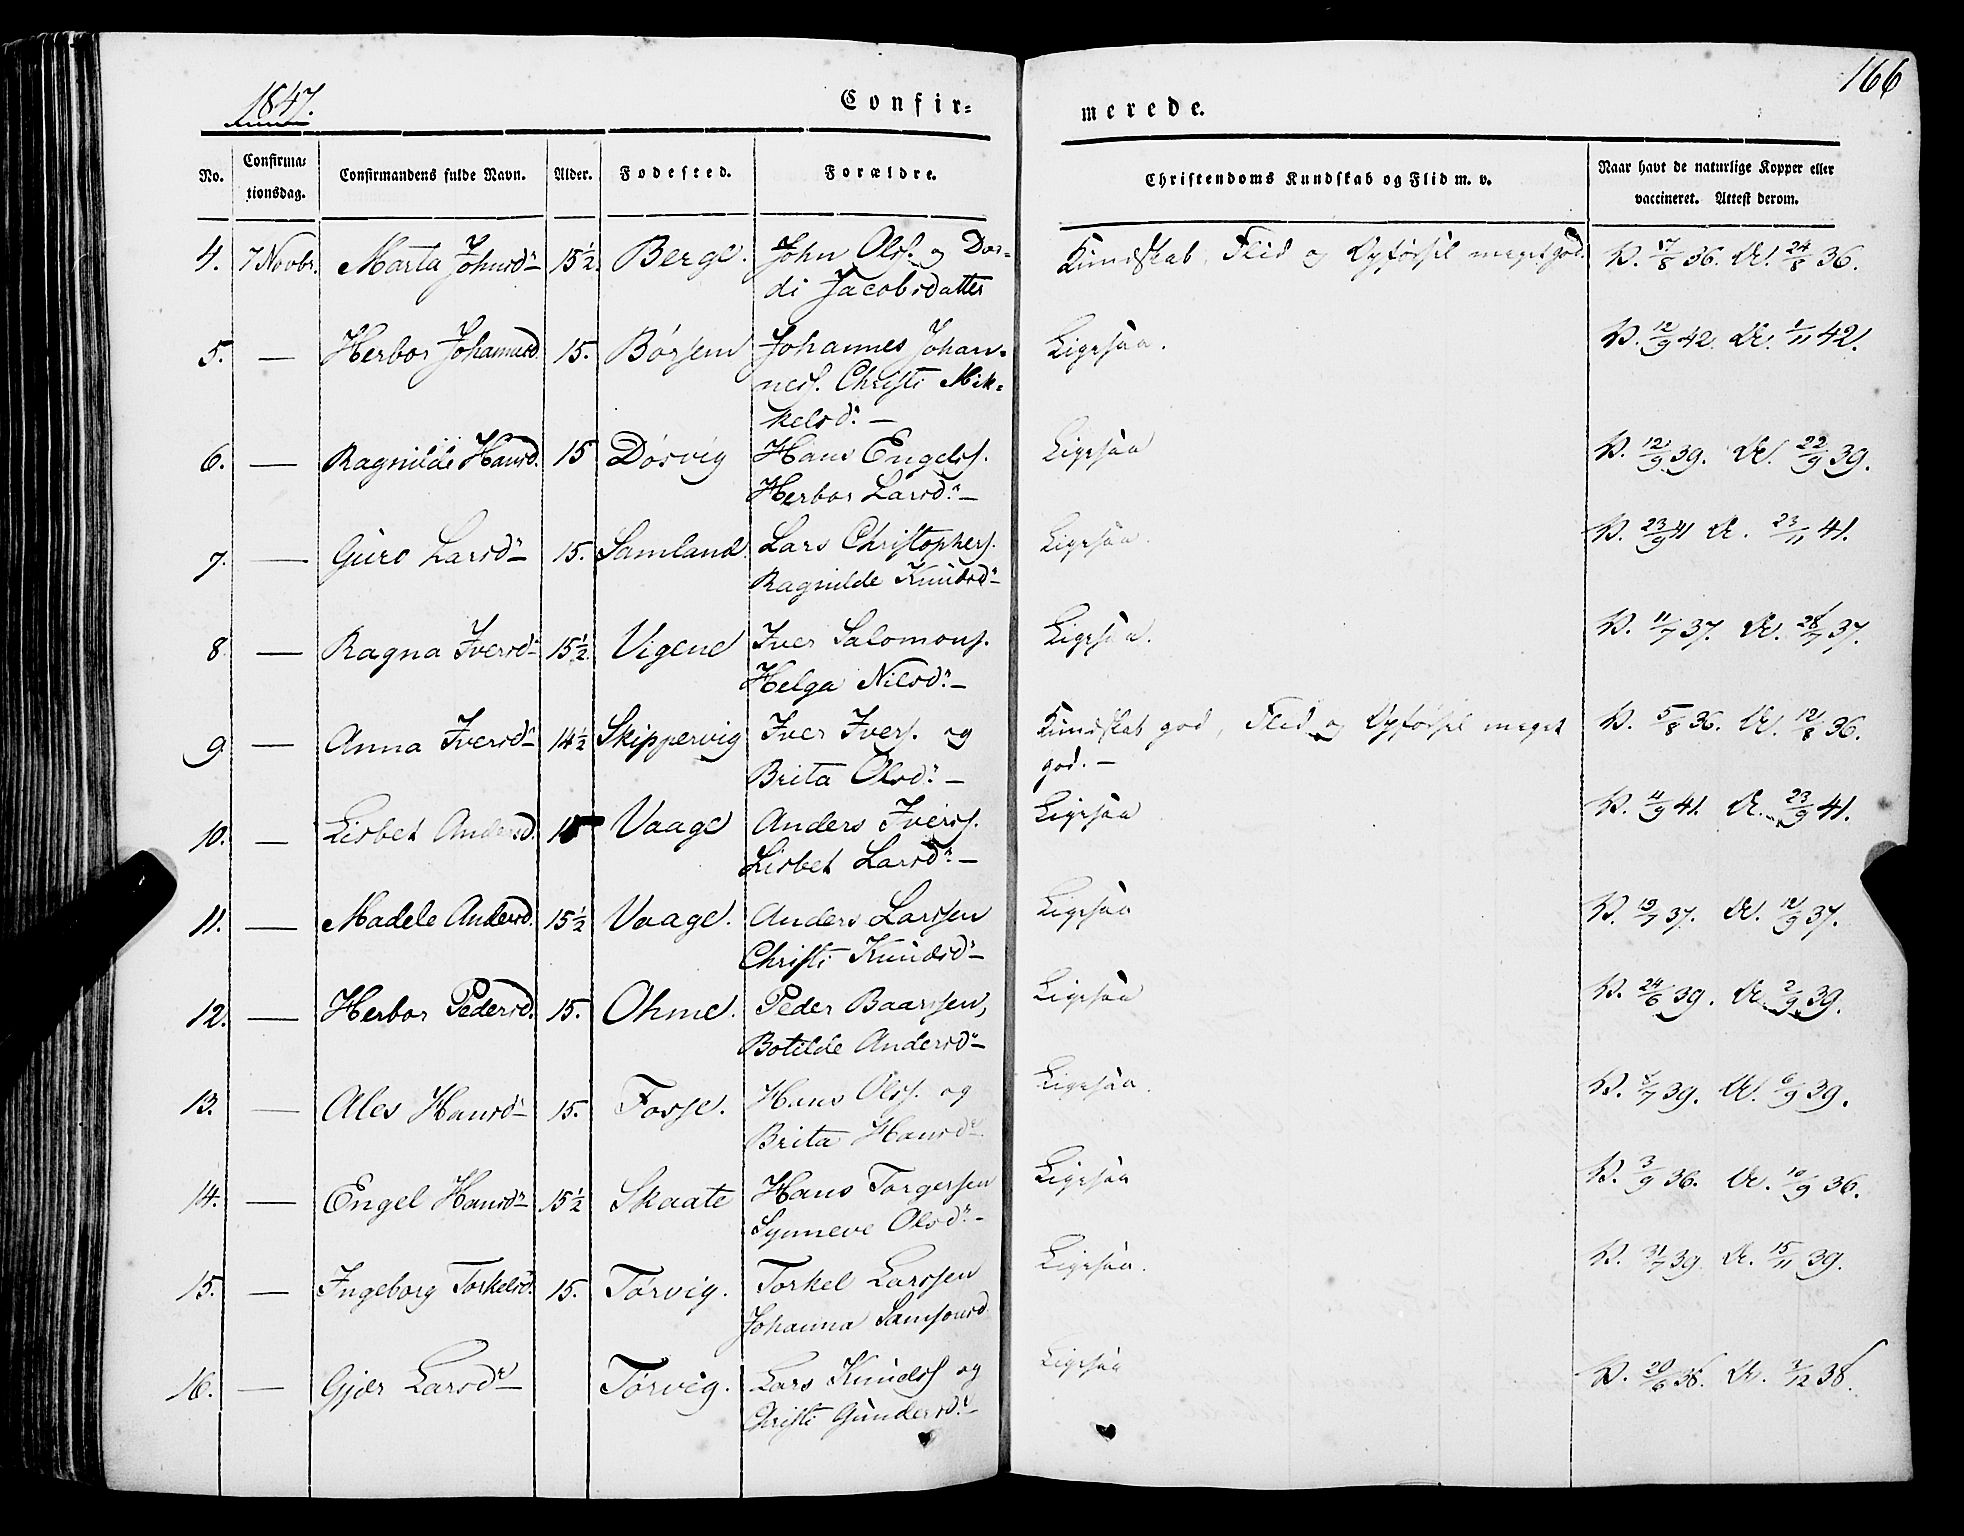 1847.
Confir=
merede.
166
No.
Confirma=
tionsdag.
Confirmandens fulde Navn.
Alder.
Fødested.
Forældre.
Christendoms Kundskab og Flid m. v.
Naar havt de naturlige Kopper eller
vaccineret. Attest derom.
4. 7 Novbr. Marta Johnsdr 15½. Berge. John Ols. og Dor-
di Jacobsdatter
Kundskab, Flid og Opførsel meget god. V. 17/8 36. At. 24/8 36.
5. — Herbor Johannesd. 15. Børsem Johannes Johan-
nes. Christi Mik-
kelsdr. —
Ligesaa. V. 12/9 42. At. 1/11 42.
6. — Ragnilde Hansd. 15 Dosvig Hans Engelss.
Herbor Larsdr. —
Ligesaa V. 12/9 39. At. 22/9 39.
7. — Guro Larsdr 15. Samland. Lars Christophers.
Ragnilde Knudsdr
Ligesaa. V. 23/9 41 At. 23/11 41.
8. — Ragna Iversdr 15½. Vigene Iver Salomons.
Helga Nilsdr. —
Ligesaa. V. 11/7 37. At. 28/7 37.
9 — Anna Iversdr 14½ Skippervig Iver Ivers. og
Brita Olsdr. —
Kundskab god, Flid og Opførsel meget
god. —
V. 5/8 36. At. 12/8 36.
10. — Lisbet Andersd. 15 Vaage Anders Iverss.
Lisbet Larsdr. —
Ligesaa V. 11/9 41. At. 23/9 41.
11. — Madele Andersd. 15½ Vaage. Anders Larssen
Christi Knudsdr
Ligesaa V. 19/7 37. At. 12/9 37.
12. — Herbor Pedersd. 15. Ohme. Peder Baarssen,
Botilde Andersdr
Ligesaa V. 24/6 39. At. 2/9 39.
13. — Ales Hansdr 15. Fosse. Hans Olss. og
Brita Hansdr
Ligesaa. V. 8/7 39. At. 6/9 39.
14. — Engel Hansdr 15½ Skaate Hans Torgersen
Synneve Olsdr. -
Ligesaa V. 3/9 36. At. 10/9 36.
15. — Ingeborg Torkelsd. 15. Tørvig. Torkel Larssen
Johanna Samsonsd.
Ligesaa. V. 31/7 39. At. 15/11 39.
16. — Gjær Larsdr Tørvig. Lars Knudss og
Christi Gundersdr.
Ligesaa V. 20/6 38. At. 7/12 38.